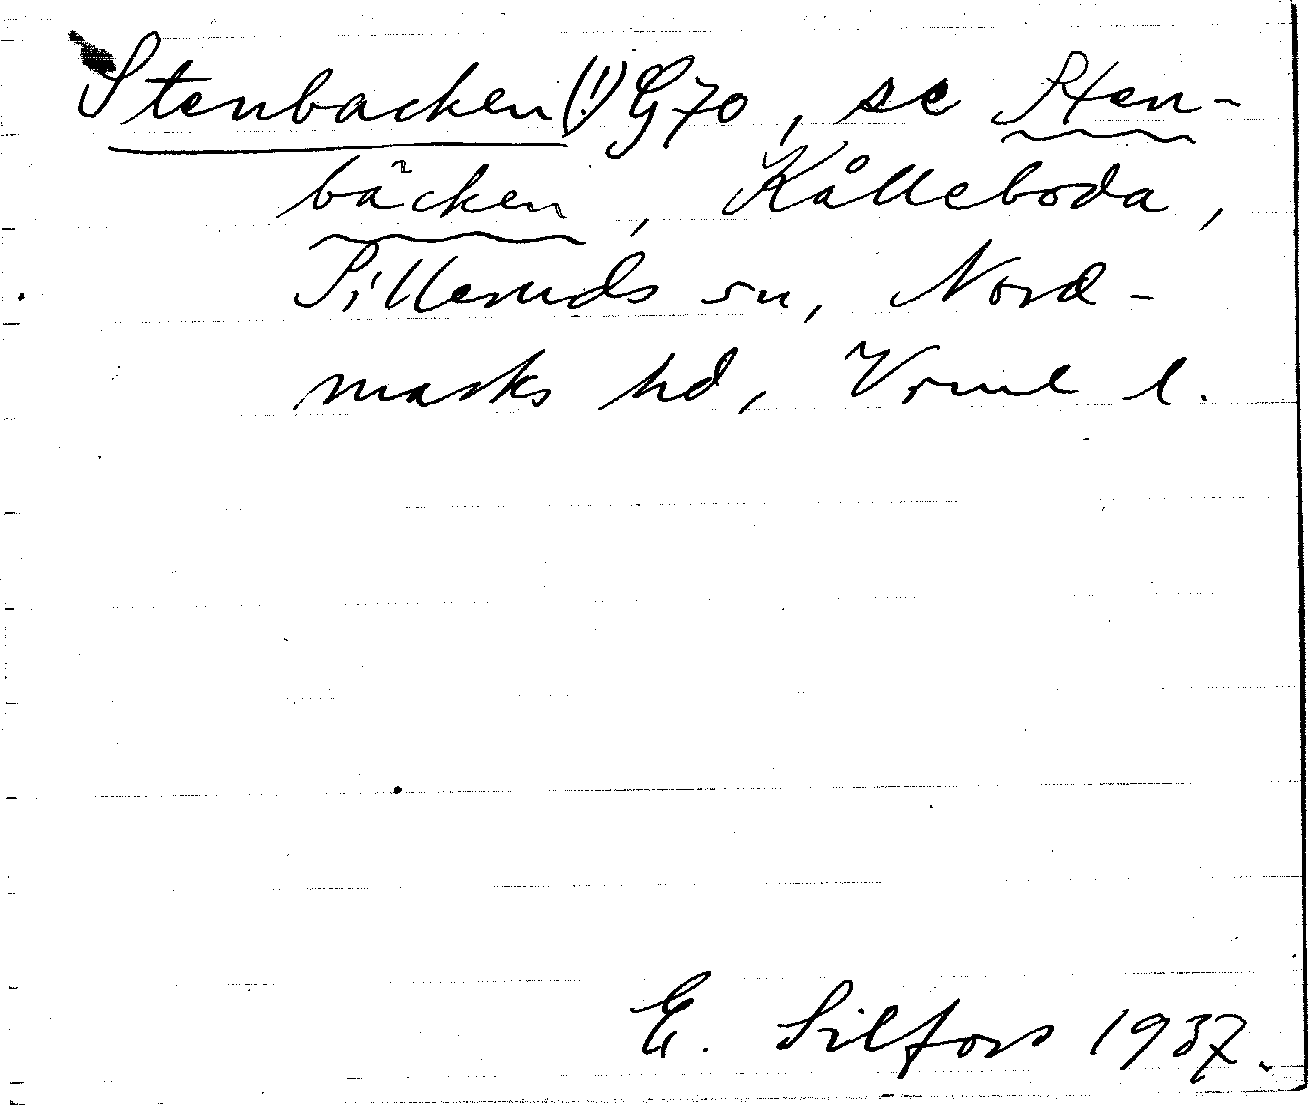 Stenbacken (!) G70, se Sten-
bäcken, Kålleboda,
Silleruds sn, Nord-
marks hd, Vrml l.
E. Silfors 1937.